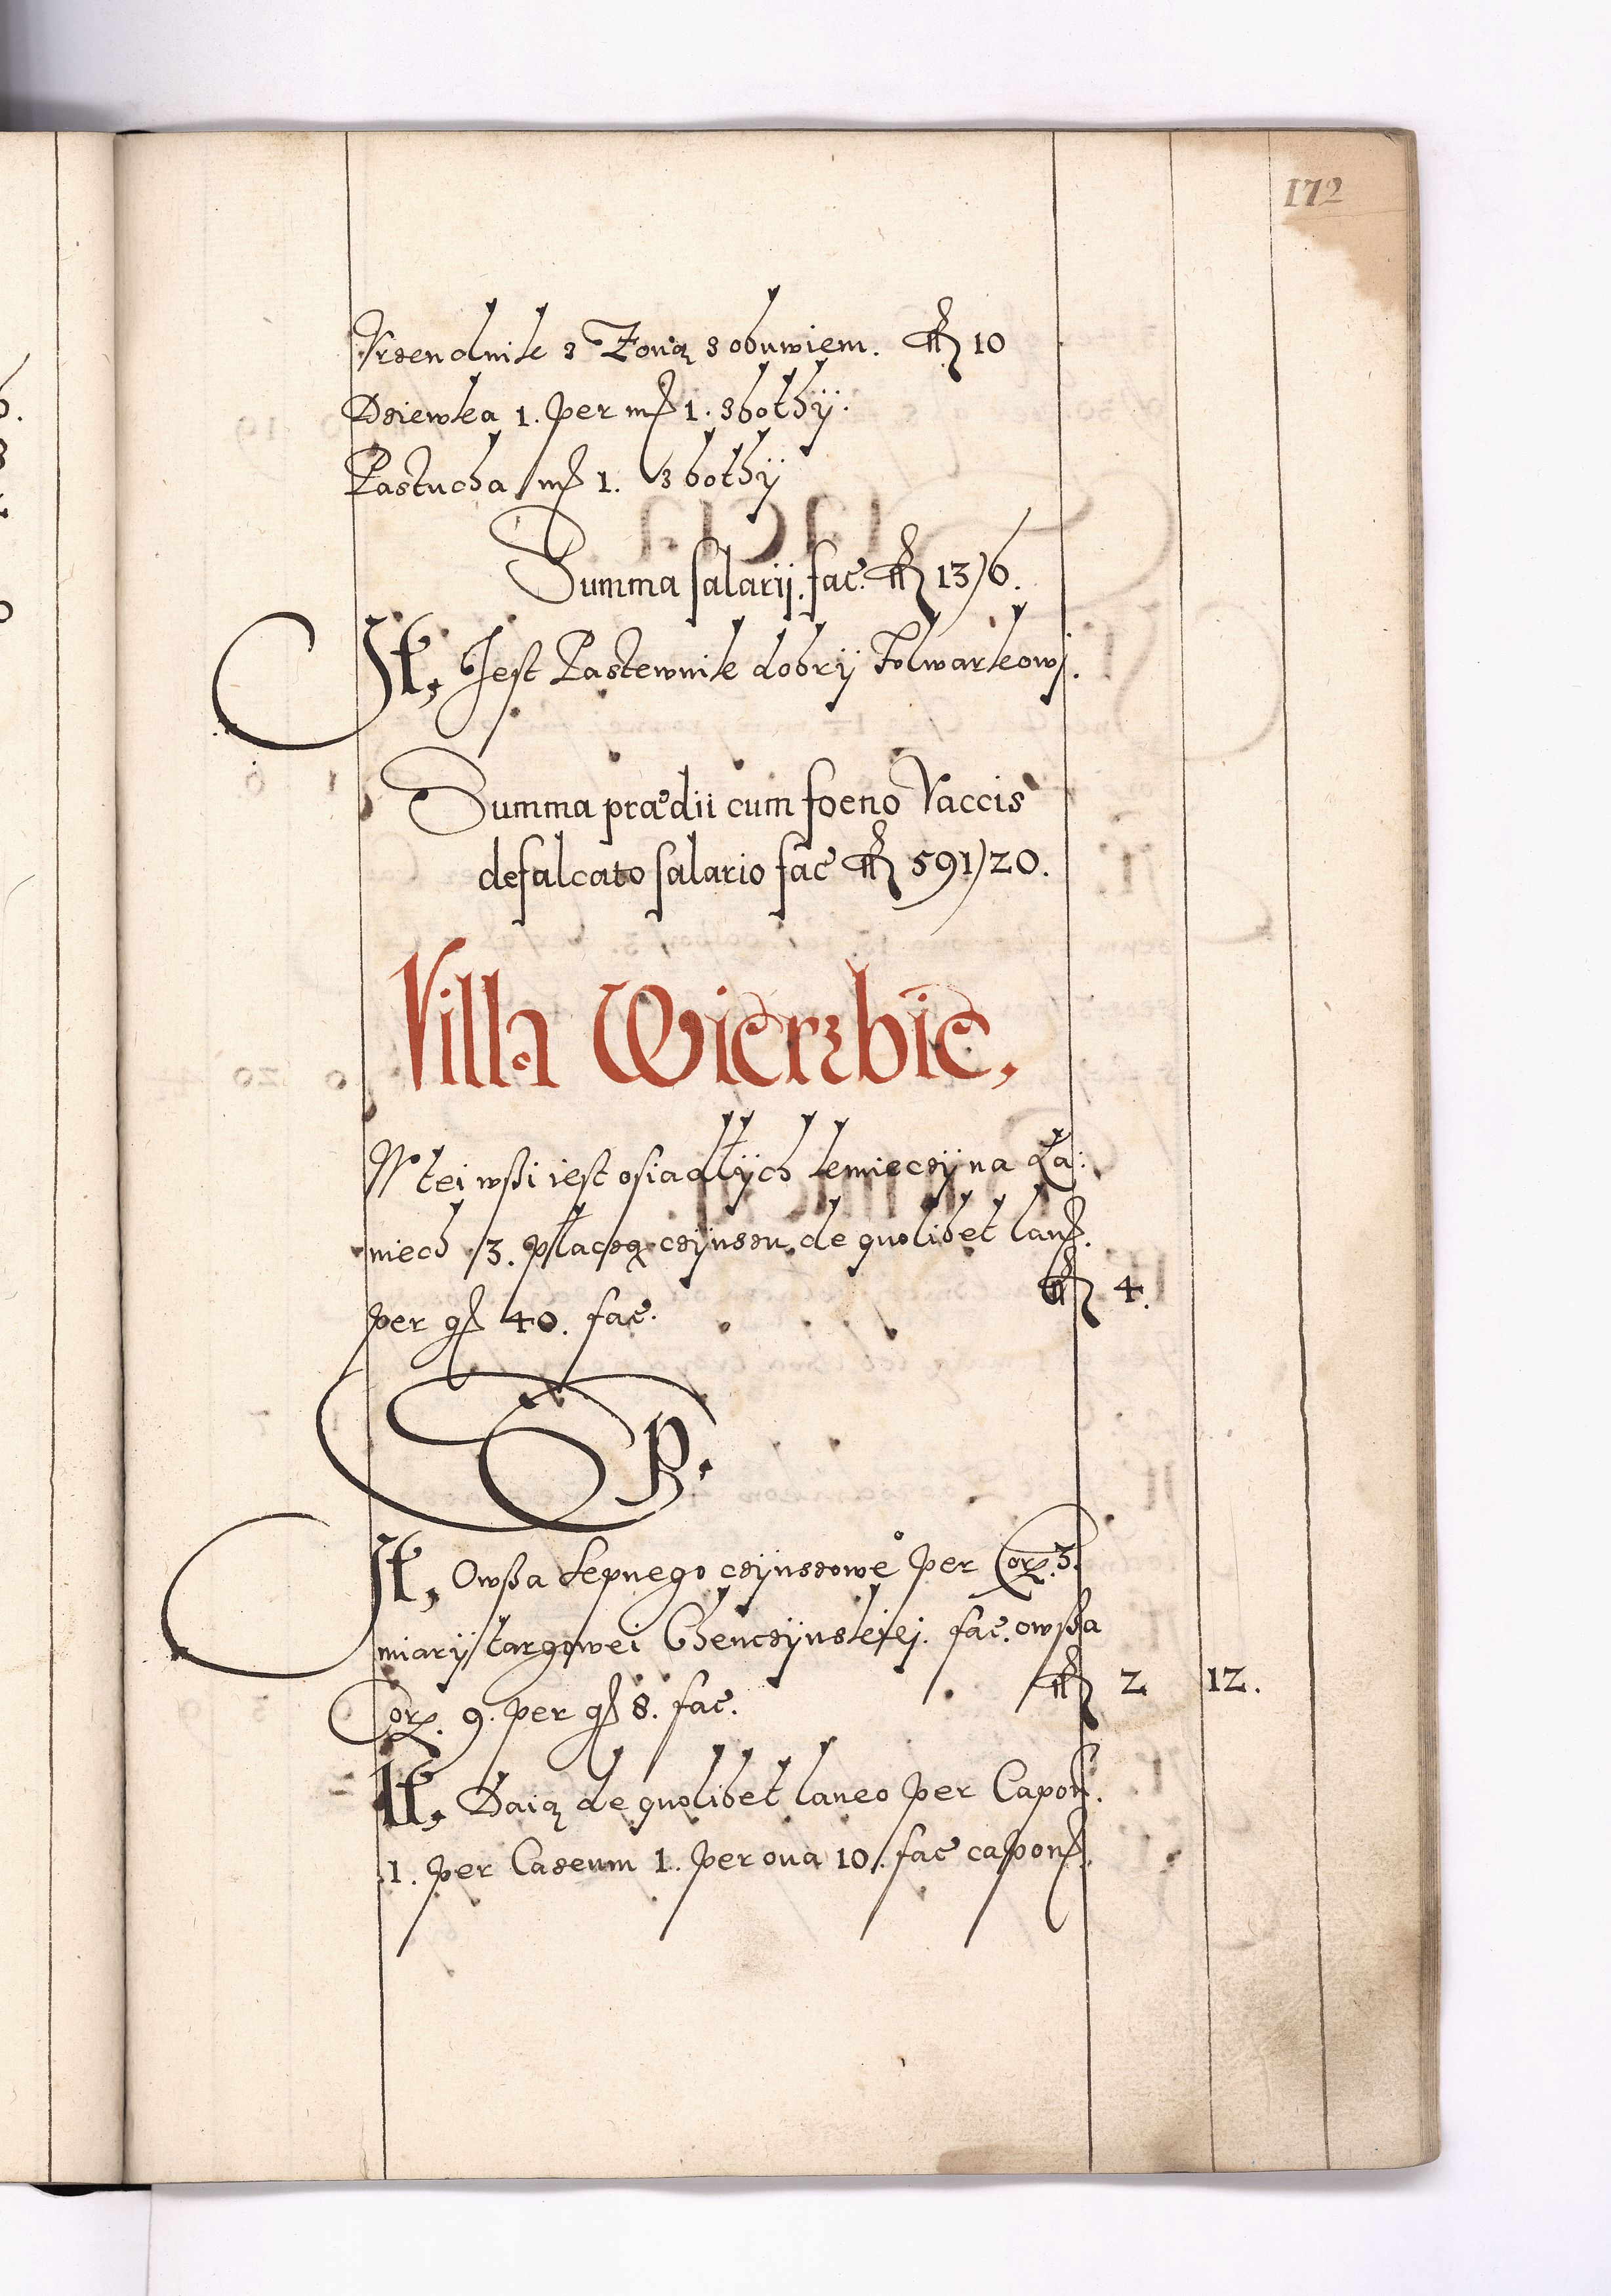 172
Vrzendnik z Zoną z obuwiem. fl 10
Dziewka 1. per mr 1. z bothÿ.
Pastucha mr 1. z bothÿ
Summa salarij. fac. fl 13/6.
It, Jest Pastewnik dobrÿ Folwarkowj.
Summa prædii cum foeno Vaccis
defalcato salario fac fl 591/20.
Villa Wierzbie,
W tei wßi iest osiadłÿch kmieczÿ na Ła:
niech 3. płaczą czÿnszu de quolibet lan.
per gr 40. fac. fl 4.
It, Owßa sepnego czÿnszowe per Corz. 3.
miarÿ targowei Chenczÿnskiej. fac. owßa
Corz. 9. per gr 8. fac. fl 2 12.
It, Daią de quolibet laneo per Capon.
1. per Caseum 1. per oua 10. fac capon.